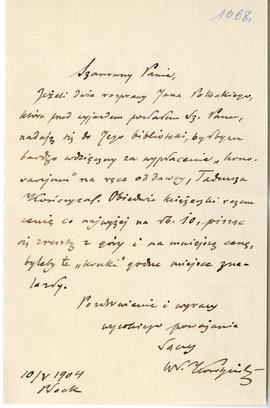 1068.
Szanowny Panie,
Jeżeli dwie rozprawy Jana Potockiego,
które przed wyjazdem posłałem Sz. Panu,
nadają się do Jego biblioteki, byłbym
bardzo wdzięczny za wypłacenie „hono-
rarjum” na ręce oddawcy, Tadeusza
Obiedwie książeczki razem
cenię co najwyżej na rb. 10, pisząc
się zresztą z góry i na mniejszą cenę,
byleby te „kruki” godne miejsce zna-
lazły.
Pozdrowienie i wyrazy
wysokiego poważania
łączę
10/V 1904
Płock